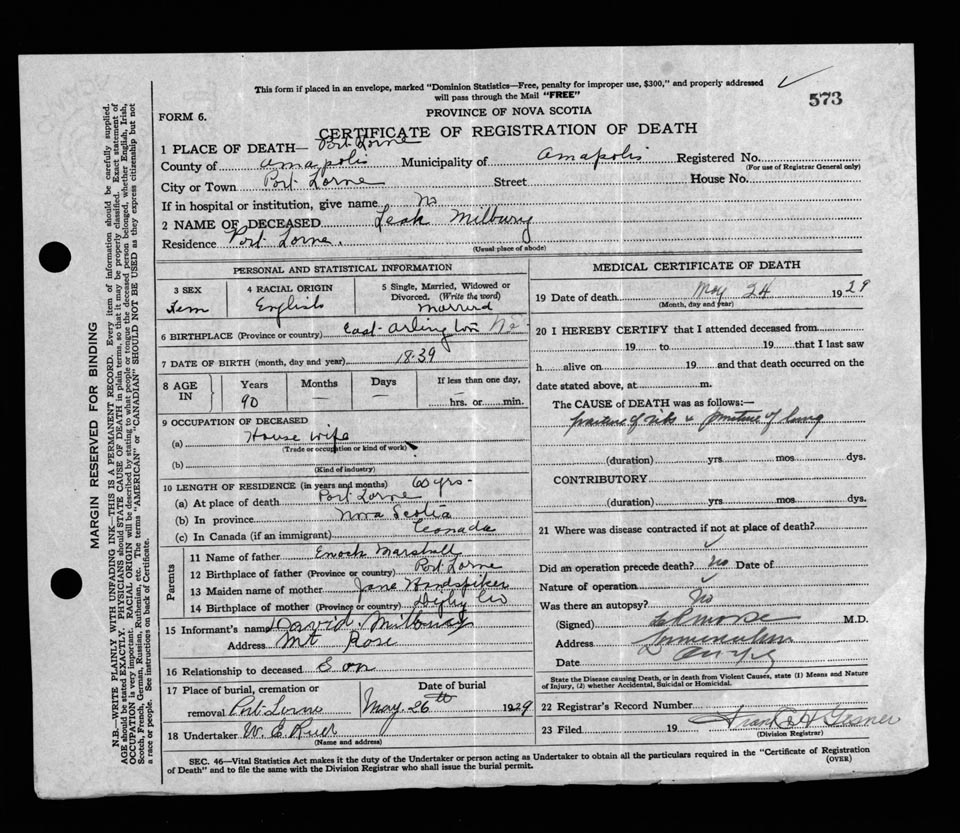 This form if placed in an envelope, marked "Dominion Statistics—Free, penalty for improper use, $300," and properly addressed
will pass through the Mail "FREE"
573
FORM 6.
PROVINCE OF NOVA SCOTIA
CERTIFICATE OF REGISTRATION OF DEATH
1 PLACE OF DEATH— Port Lorne
County of Annapolis Municipality of Annapolis Registered No.
(For use of Registrar General only)
City or Town Port Lorne Street House No.
If in hospital or institution, give name No
2 NAME OF DECEASED Leah Milbury
Residence Port Lorne.
(Usual place of abode)
PERSONAL AND STATISTICAL INFORMATION
3 SEX 4 RACIAL ORIGIN 5 Single, Married, Widowed or
Divorced. (Write the word)
Fem English Married
6 BIRTHPLACE (Province or country) East Arlington NS
7 DATE OF BIRTH (month, day and year) 1839
8 AGE IN Years Months Days If less than one day,
90 — — hrs. or min.
9 OCCUPATION OF DECEASED
(a) House wife
(Trade or occupation or kind of work)
(b)
(Kind of industry)
10 LENGTH OF RESIDENCE (in years and months) 60 yrs-
(a) At place of death Port Lorne
(b) In province Nova Scotia
(c) In Canada (if an immigrant) Canada
Parents
11 Name of father Enoch Marshall
12 Birthplace of father (Province or country) Port Lorne
13 Maiden name of mother Jane Handspiker
14 Birthplace of mother (Province or country) Digby Co
15 Informant's name David Milbury
Address Mt Rose
16 Relationship to deceased Son
17 Place of burial, cremation or Date of burial
removal Port Lorne May 26th 1929
18 Undertaker W. E.
(Name and address)
MEDICAL CERTIFICATE OF DEATH
19 Date of death May 24 1929
(Month, day and year)
20 I HEREBY CERTIFY that I attended deceased from
19 to 19 that I last saw
h alive on 19 and that death occurred on the
date stated above, at m.
The CAUSE of DEATH was as follows:—
fracture of ribs & puncture of lung
(duration) yrs. mos. dys.
CONTRIBUTORY
(duration) yrs. mos. dys.
21 Where was disease contracted if not at place of death?
Did an operation precede death? No Date of
Nature of operation
Was there an autopsy? No
(Signed) Morse M.D.
Address
Date
State the Disease causing Death, or in death from Violent Causes, state (1) Means and Nature
of Injury, (2) whether Accidental, Suicidal or Homicidal.
22 Registrar's Record Number
23 Filed 19 Frank H Gesner
(Division Registrar)
SEC. 46—Vital Statistics Act makes it the duty of the Undertaker or person acting as Undertaker to obtain all the particulars required in the "Certificate of Registration
of Death" and to file the same with the Division Registrar who shall issue the burial permit.
(OVER)
MARGIN RESERVED FOR BINDING
N.B.—WRITE PLAINLY WITH UNFADING INK—THIS IS A PERMANENT RECORD. Every item of information should be carefully supplied.
AGE should be stated EXACTLY. PHYSICIANS should STATE CAUSE OF DEATH in plain terms, so that it may be properly classified. Exact statement of
OCCUPATION is very important. RACIAL ORIGIN will be described by stating to what people or tongue the deceased person belonged, whether English, Irish,
Scotch, French, German, Russian, Ruthenian, etc. The terms "AMERICAN" or "CANADIAN" SHOULD NOT BE USED as they express citizenship but not
a race or people. See instructions on back of Certificate.